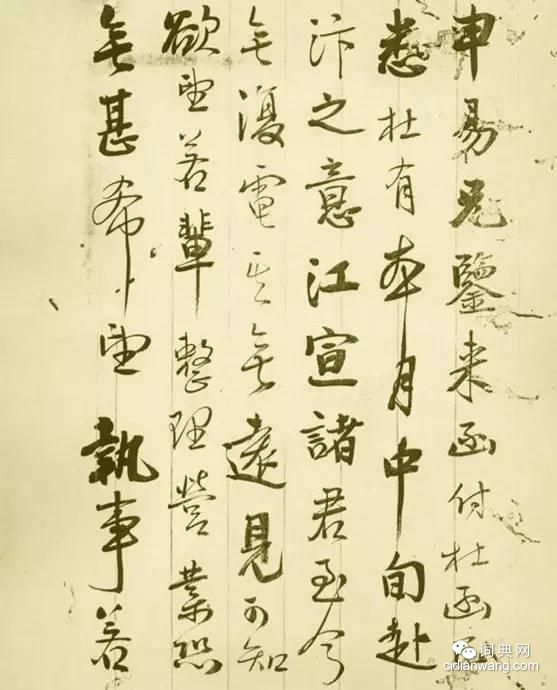 申易兄鑒来函付杜函
悉杜有本月中旬赴
汴之意江宣諸君至今
無復電其無遠見可知
欲望若輩整理營業恐
無甚希望執事若
词典网
cidianwang.com